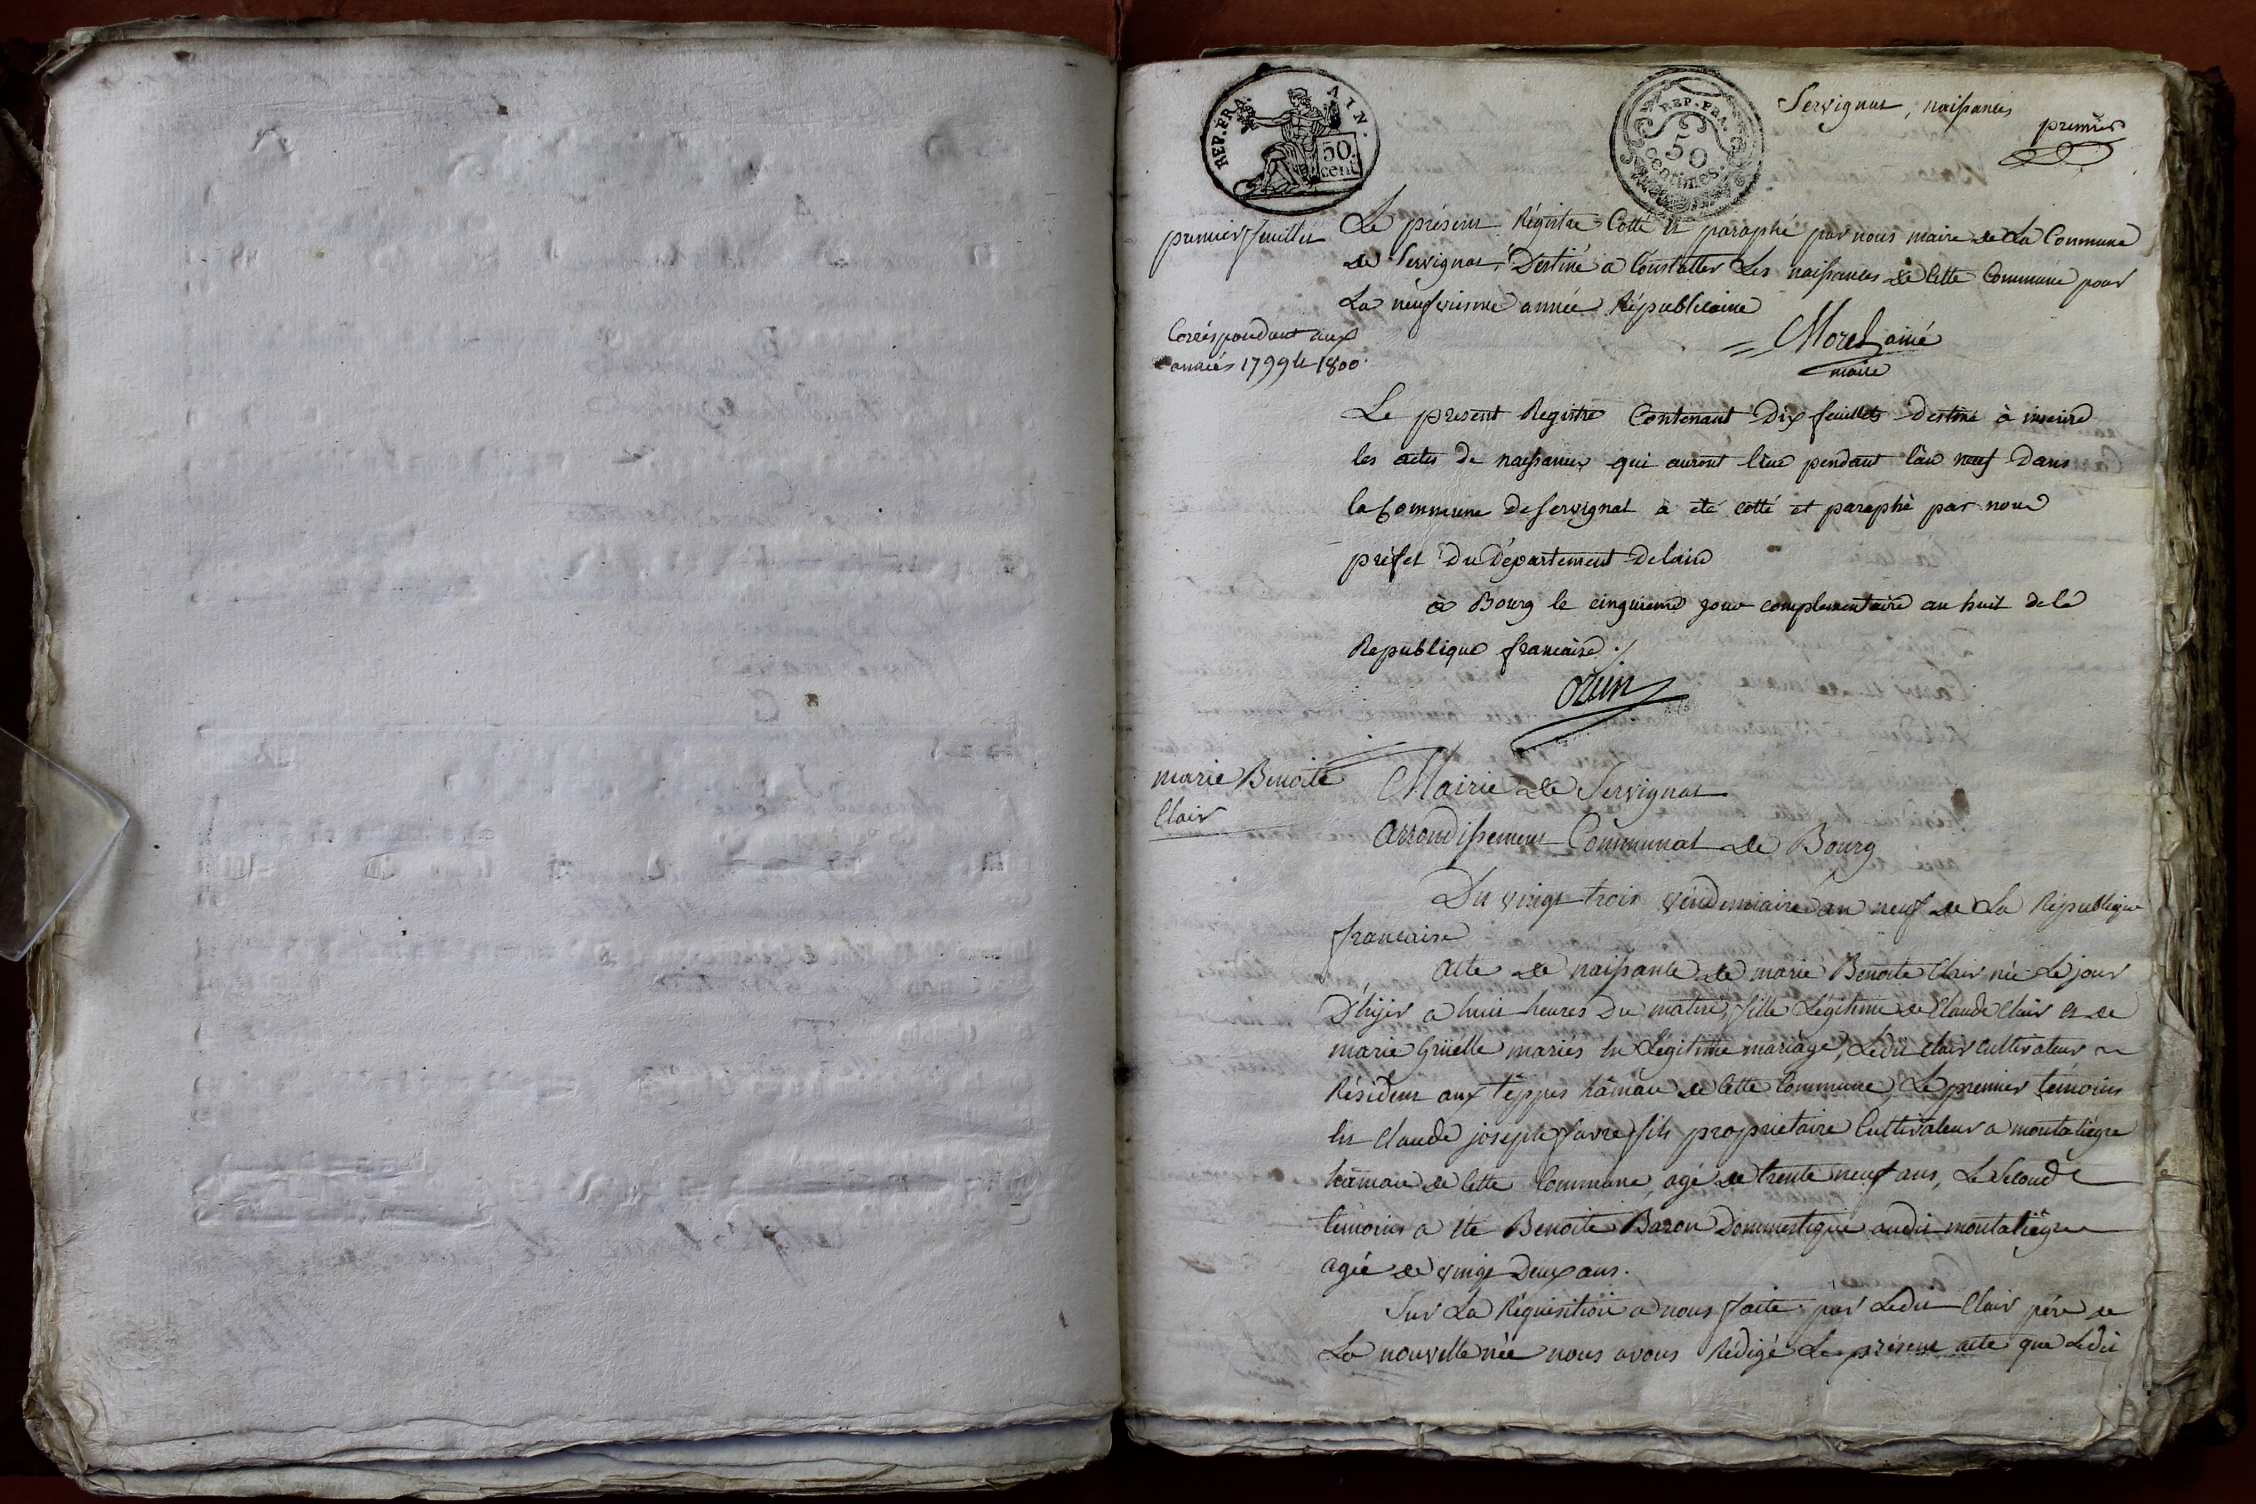 REP. FRA. AIN.
50
cent.
REP. FRA.
50
centimes.
Servignat, naissances
premier
premier feuillet
Le présent Régistre Cotté et paraphé par nous maire de La Commune
de Servignat, Destiné a Constatter Les naissances de Cette Commune pour
La neufviesme année Républicaine
Corréspondant aux
années 1799 et 1800.
Morel ainé
maire
Le present Registre Contenant Dix feuillets Destiné à inscrire
les actes de naissances qui auront lieu pendant l'an neuf Dans
la Commune de Servignat a été cotté et paraphé par nous
préfet Du Département De l'ain
à Bourg le cinquieme jour complementaire an huit de la
Republique francaise ./.
Ozun
marie Benoite
Clair
Mairie de Servignat
Arrondissement Communal de Bourg
Du vingt trois vendemiaire an neuf de La République
francaise
Acte de naissance de marie Benoite Clair née Le jour
D'hijer a huit heures Du matin, fille Légitime de Claude Clair et de
marie Grüelle mariés en Légitime mariage, Ledit Clair Cultivateur
Résident aux Teppes hámau de Cette Commune, Le premier temoins
est Claude joseph favre fils propriétaire Cultivateur a montaliegre
hámau de Cette Commune, agé de trente neuf ans, Le Second
temoins a été Benoite Baron Dommestique audit montaliégre
agée de vingt Deux ans.
Sur La Réquisition a nous faite par Ledit Clair pére de
La nouvelle née nous avons Rédigé Le présent acte que Ledit